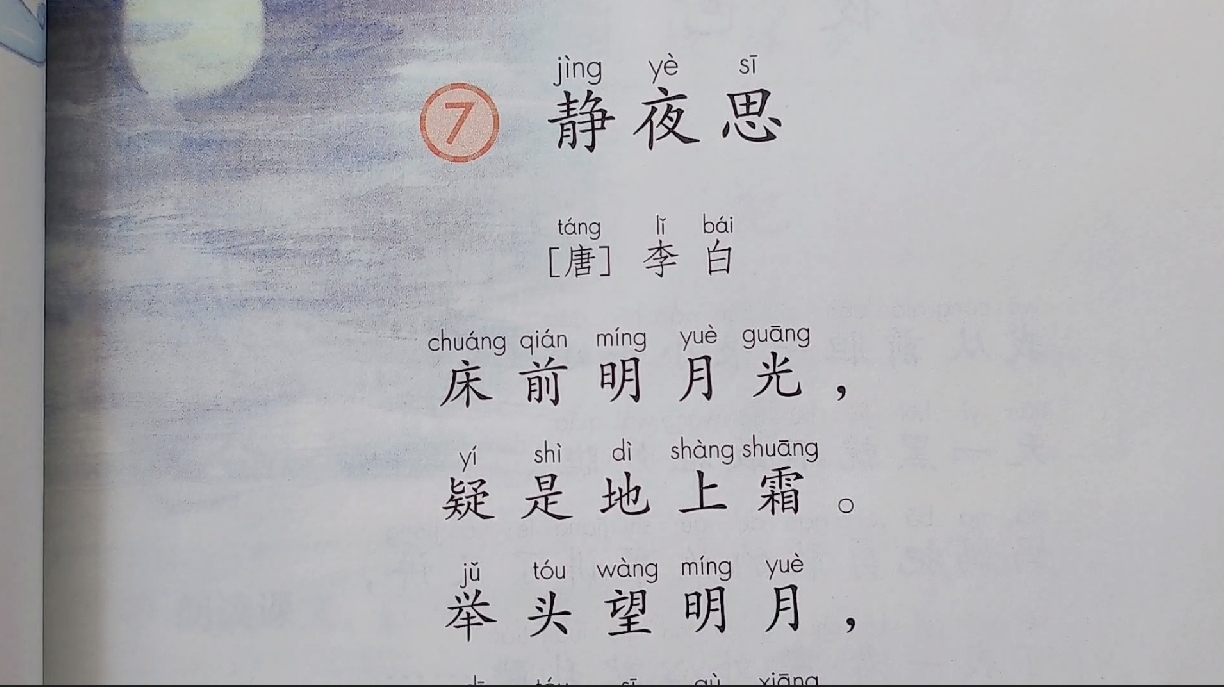 jìng yè sī
7 静夜思
táng lǐ bái
[唐] 李白
chuáng qián míng yuè guāng
床前明月光，
yí shì dì shàng shuāng
疑是地上霜。
jǔ tóu wàng míng yuè
举头望明月，